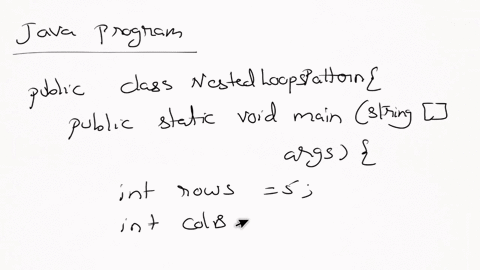 Java program
public class NestedLoopsPattern{
public static void main (string []
args) {
int rows =5;
int cols